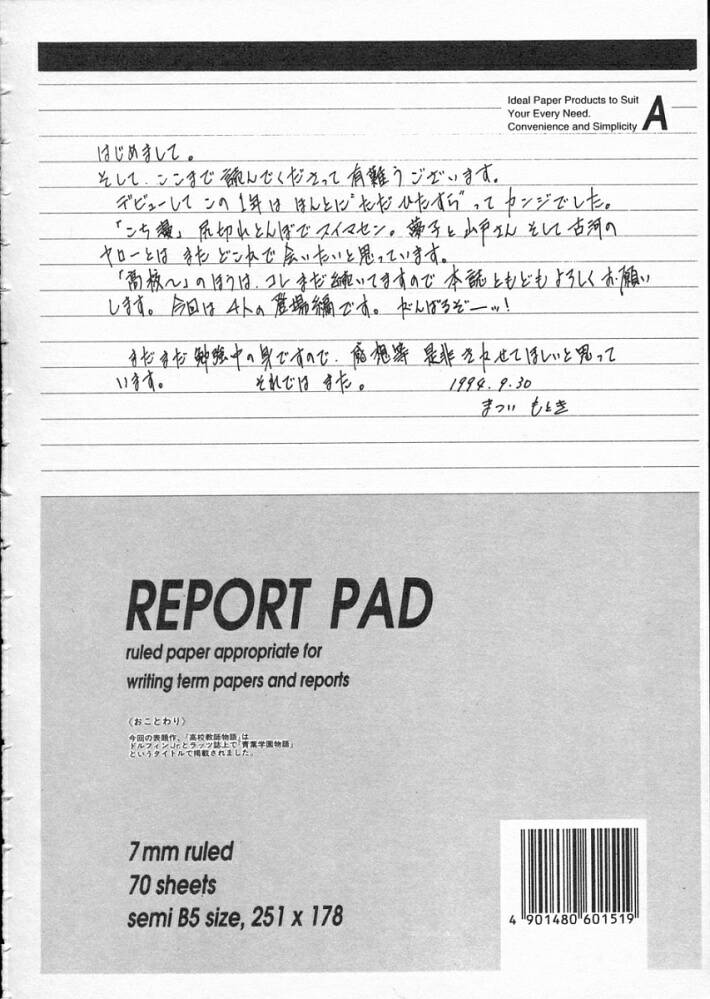 Ideal Paper Products to Suit
Your Every Need.
Convenience and Simplicity A
はじめまして。
そして、ここまで読んでくださって有難うございます。
デビューしてこの1年はほんとに"ただひたすら"ってカンジでした。
「こち薬」尻切れとんぼでスイマセン。蘭子と山戸さんそして古河の
ヤローとはまたどこかで会いたいと思っています。
「高校〜」のほうは、コレまだ続いてますので本誌ともどもよろしくお願い
します。今回は4人の登場編です。がんばるぞーッ!
まだまだ勉強中の身ですので、感想等是非きかせてほしいと思って
います。 それではまた。 1994.9.30
まつい もとき
REPORT PAD
ruled paper appropriate for
writing term papers and reports
《おことわり》
今回の表題作、「高校教師物語」は
ドルフィンJr.とラッツ誌上で「青葉学園物語」
というタイトルで掲載されました。
7mm ruled
70 sheets
semi B5 size, 251 x 178
4 901480 601519